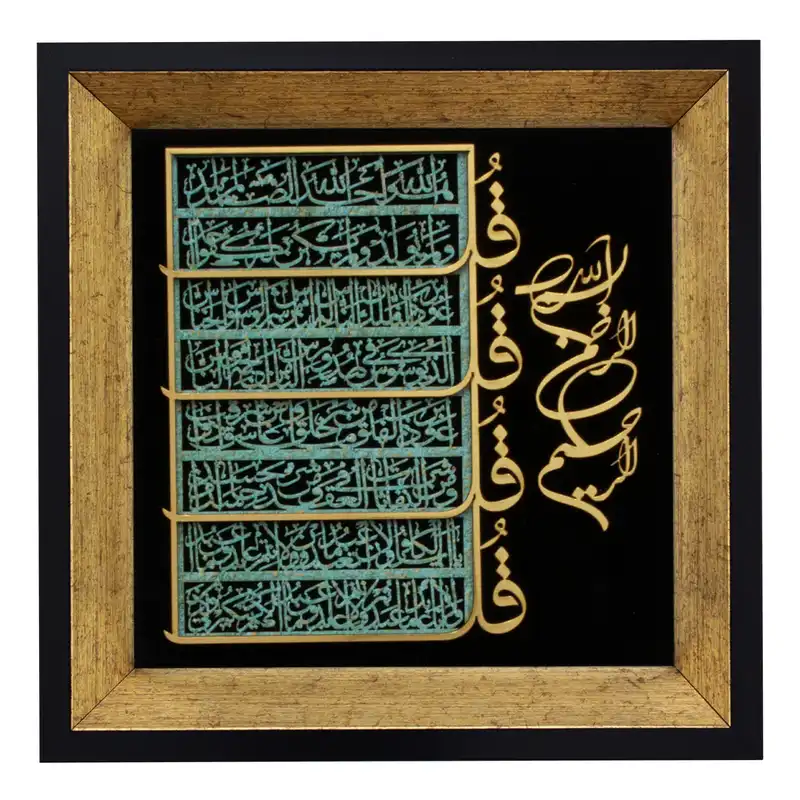 بسم الله الرحمن الرحیم
قل هو الله احد الله الصمد لم یلد
ولم یولد ولم یکن له کفوا احد
قل اعوذ برب الناس ملک الناس اله الناس من شر الوسواس الخناس
الذی یوسوس فی صدور الناس من الجنة والناس
قل اعوذ برب الفلق من شر ما خلق ومن شر غاسق اذا وقب
ومن شر النفاثات فی العقد ومن شر حاسد اذا حسد
قل یا ایها الکافرون لا اعبد ما تعبدون ولا انتم عابدون
ما اعبد ولا انا عابد ما عبدتم ولا انتم عابدون ما اعبد لکم دینکم ولی دین